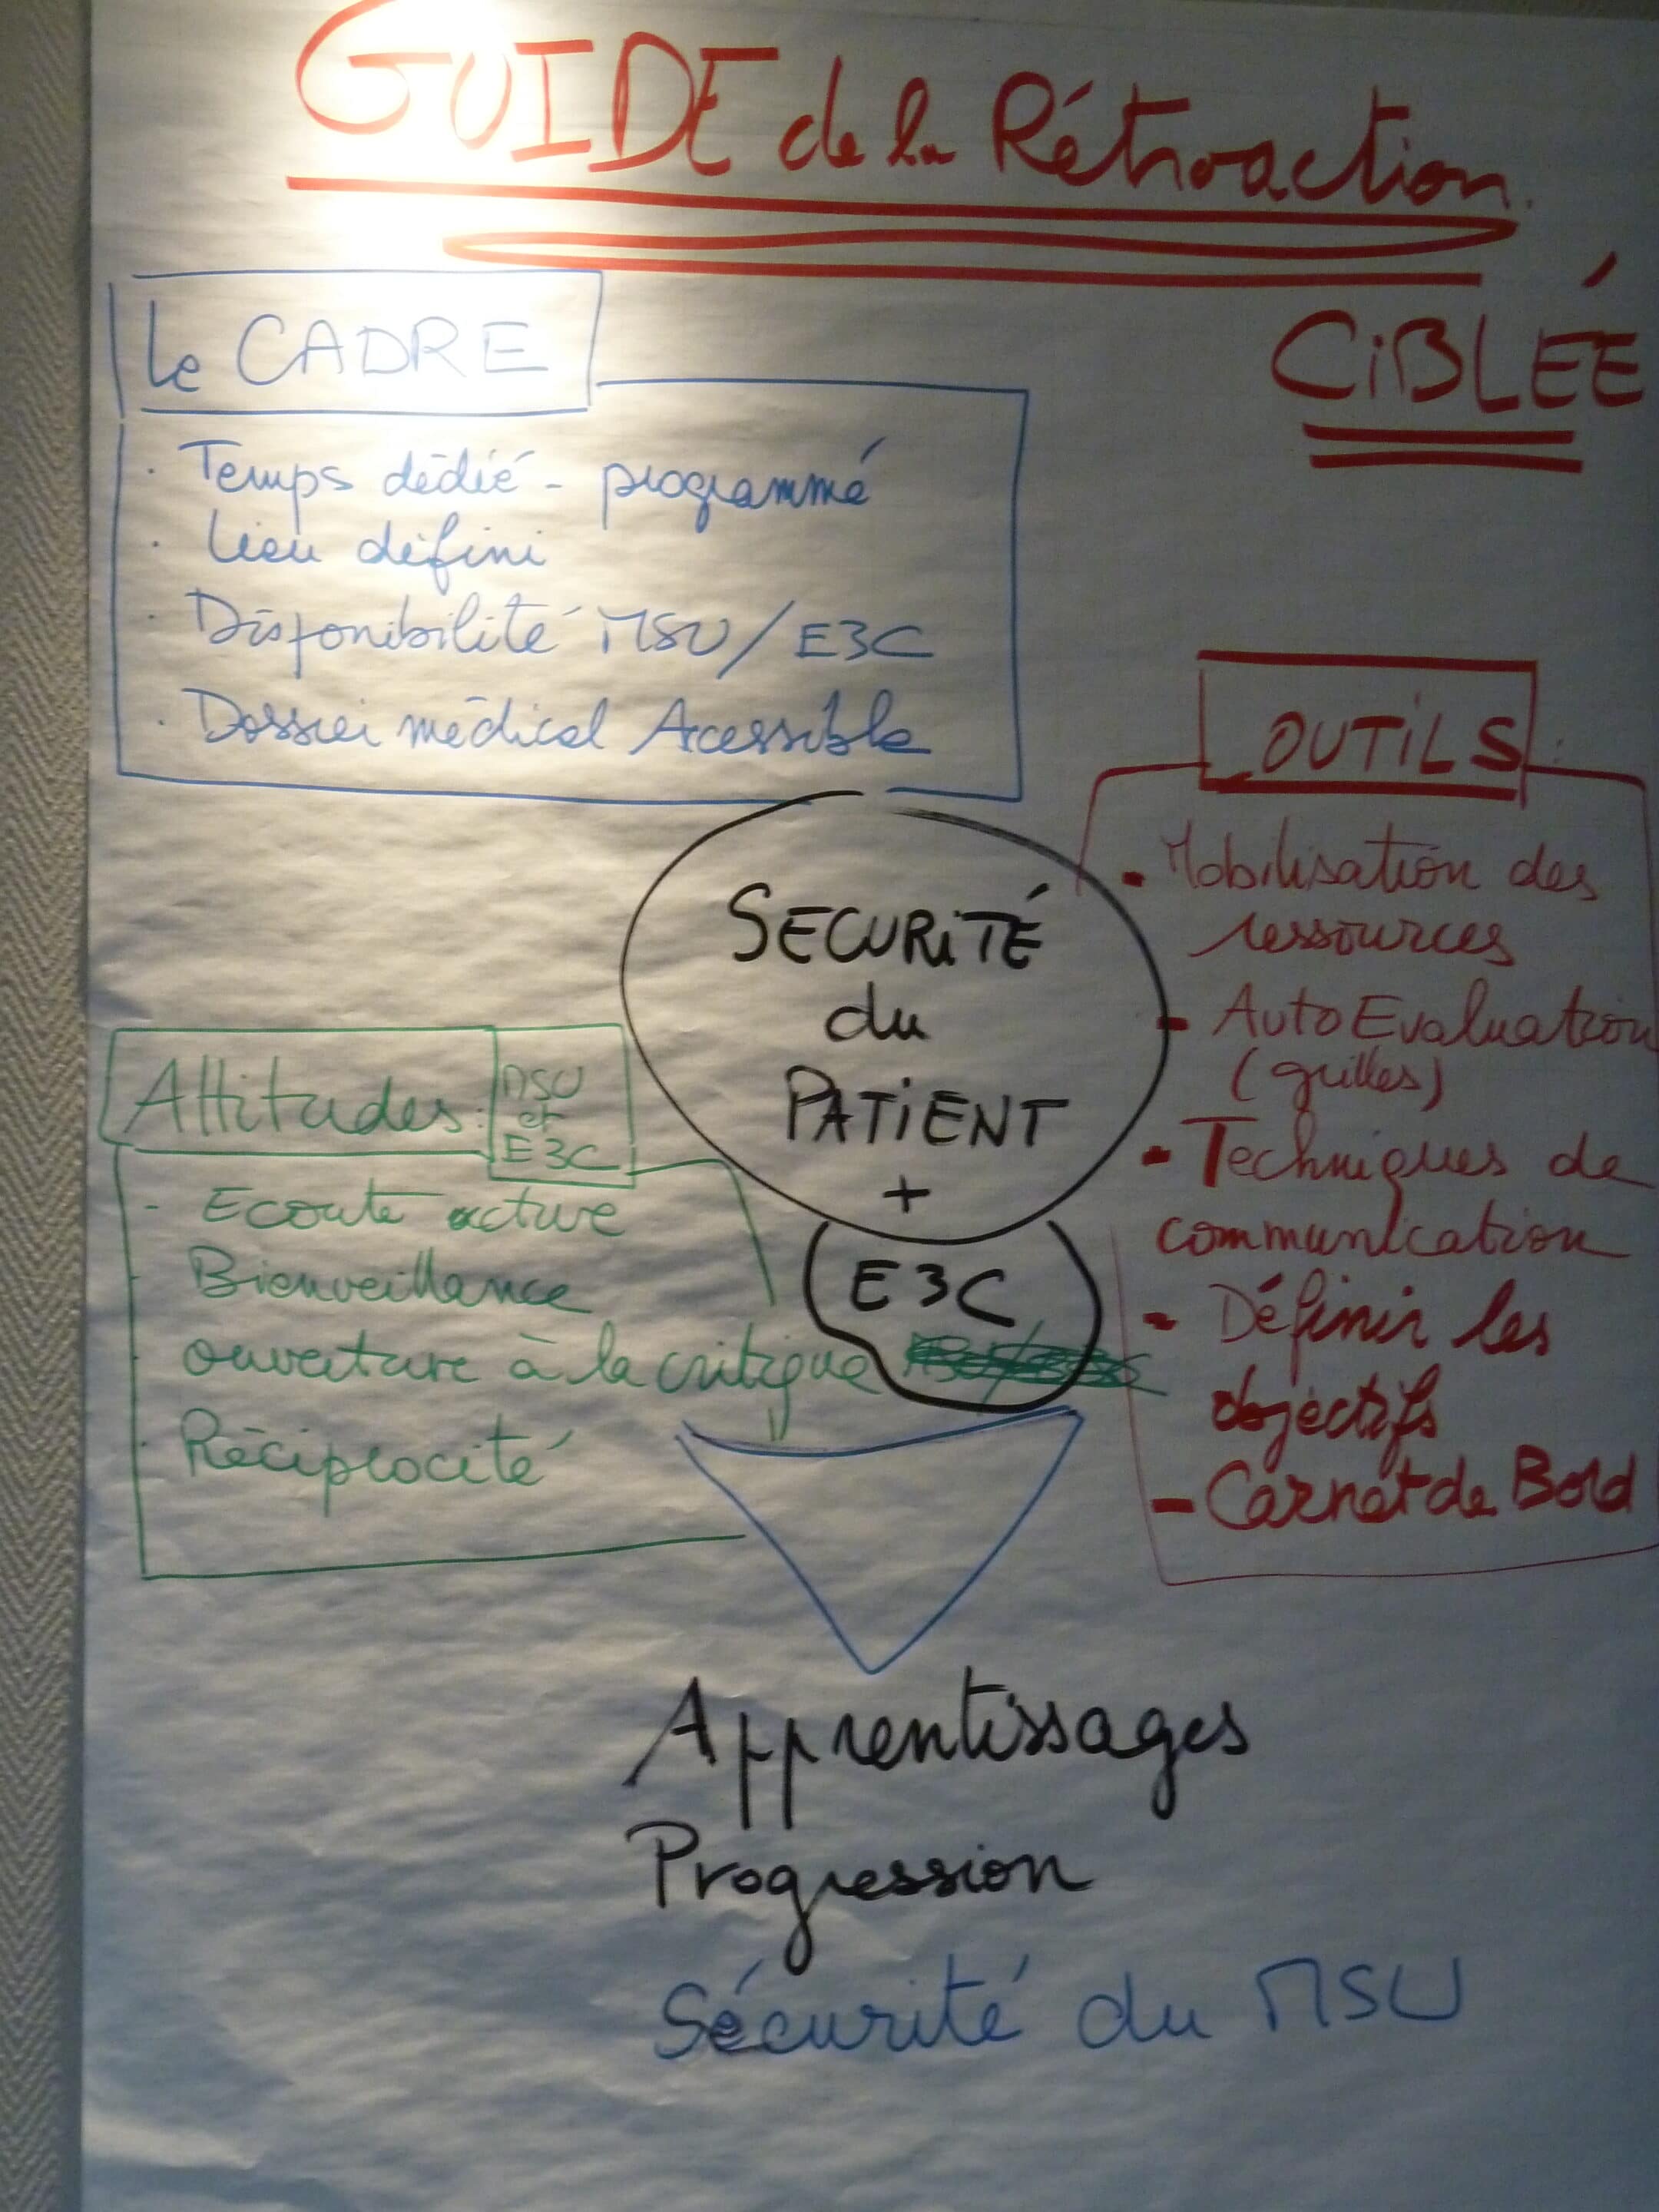 GUIDE de la Rétroaction
CiBLÉE
le CADRE
. Temps dédié - programmé
. lieu défini
. Disponibilité MSU / E3C
. Dossier médical Accessible
OUTILS :
- Mobilisation des
ressources
- Auto Evaluation
(grilles)
- Techniques de
communication
- Définir les
objectifs
- Carnet de Bord
SECURITÉ
du
PATIENT
+
E3C
Attitudes : MSU
et
E3C
- Ecoute active
- Bienveillance
- ouverture à la critique
- Réciprocité
Apprentissages
Progression
Sécurité du MSU